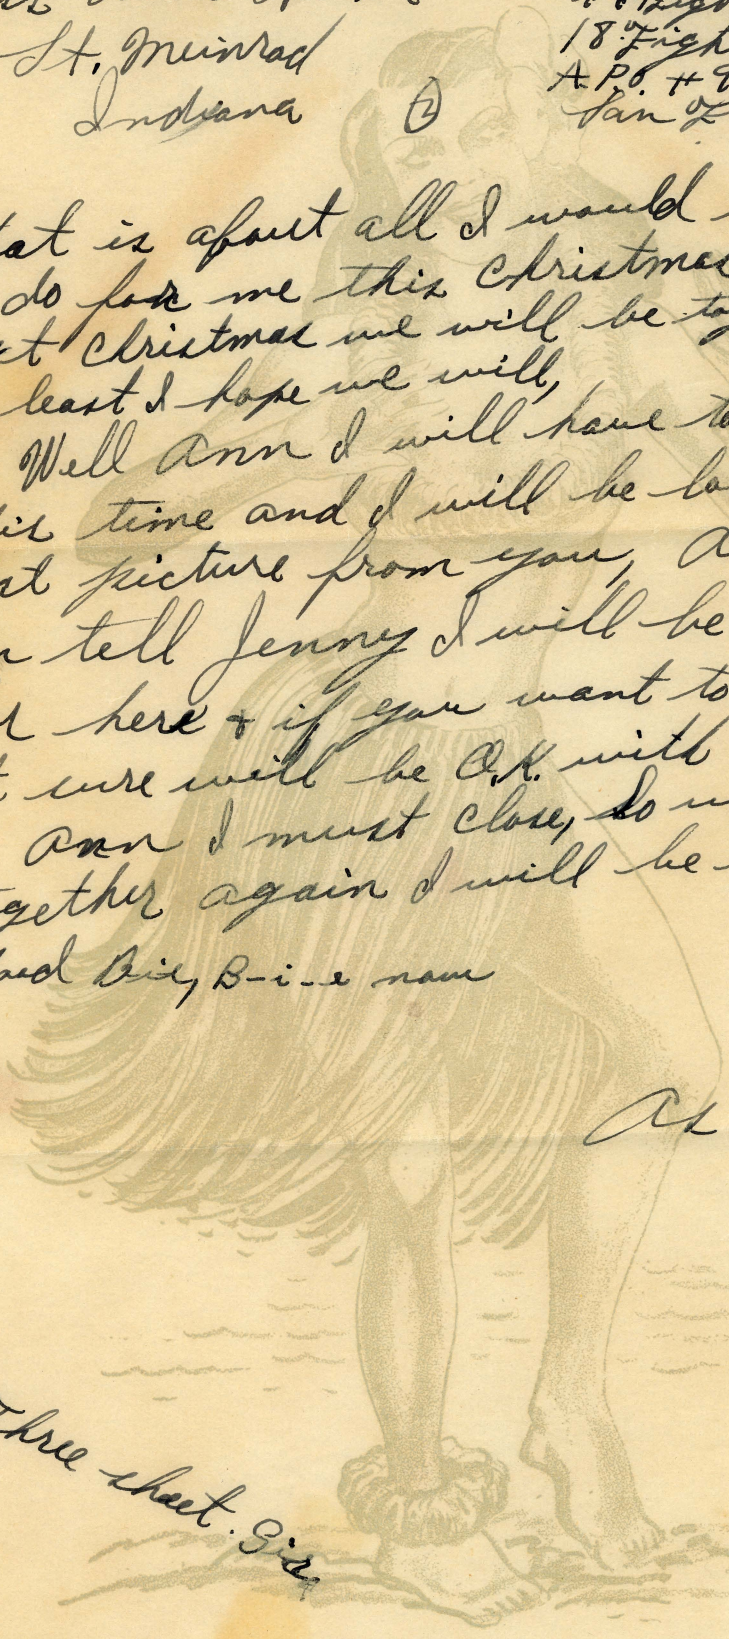 St. Meinrad
Indiana
②
18 Figh
A.P.O. # 9
San F
at is about all I would
do for me this Christmas
t Christmas we will be tog
least I hope we will,
Well Ann I will have to
is time and I will be lo
st picture from you, A
tell Jenny I will be
r here + if you want to
t sure will be O.K. with
Ann I must close, So w
gether again I will be
Bie, B-i-e now
As
Three sheet.